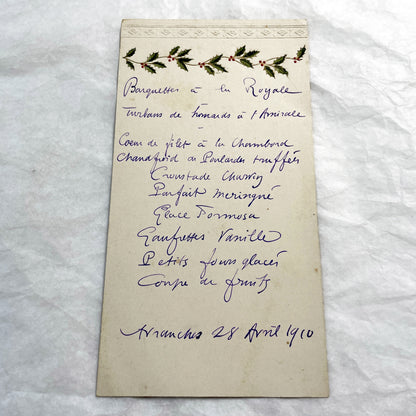 Barquettes à la Royale
Turbans de homards à l'Amirale
Cœur de filet à la Chambord
Chaudfroid de Poulardes truffées
Croustade
Parfait meringué
Glace Formosa
Gaufrettes Vanille
Petits fours glacés
Coupe de fruits
Avranches 28 Avril 1910